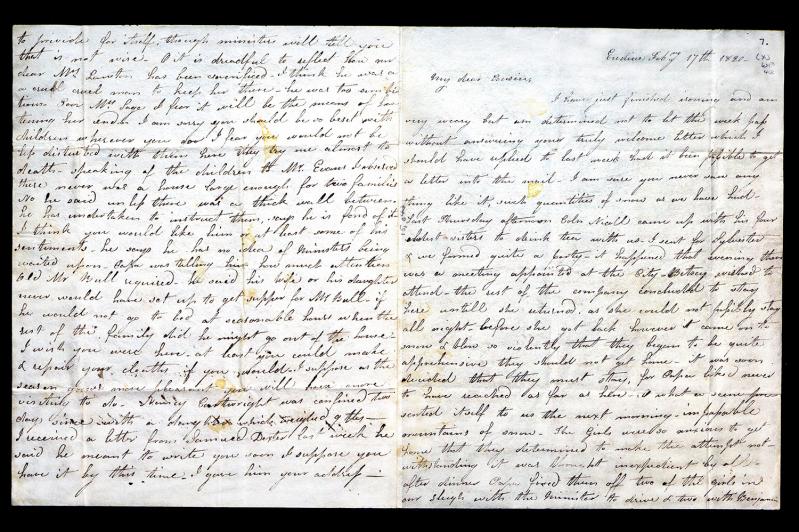 to provide for itself, though ministers will tell you
that is not wise. O it is dreadful to reflect how our
dear Mrs has been sacrificed. I think he was a
a cruel cruel man to keep her there - he was too
Poor Mrs Sage I fear it will be the means of has
tening her end. I am sorry you should be so beset with
children wherever you go. I fear you would not be
less disturbed with them here they try me almost to
death - speaking of the children to Mr. Evans I observed
there never was a house large enough for two families
No he said unless there was a thick wall between.
he has undertaken to instruct them, says he is fond of it
I think you would like him at least some of his
sentiments. he says he has no idea of Ministers being
waited upon. Papa was telling him how much attention
Old Mr Bull required. he said his wife or his daughter
never would have sat up to get supper for Mr Bull - if
he would not go to bed at seasonable hours when the
rest of the family did he might go out of the house.
I wish you were here. at least you could make
& repair your cloaths if you would. I suppose as the
season grows more pleasant you will have more
to do. Cartwright was confined two
days since with a daughter which weighed 9 lbs -
I received a letter from Samuel last week he
said he meant to write you soon I suppose you
have it by this time. I gave him your address -
7.
Feby 17th
My dear
I have just finished ironing and am
very weary but am determined not to let this week pass
without answering your truly welcome letter which I
should have replied to last week had it been possible to get
a letter into the mail - I am sure you never saw any
thing like it, such quantities of snow as we have had -
Last Thursday afternoon Coln Nicoll came up with his four
eldest sisters to drink tea with us. I sent for Sylvester
& we formed quite a party - it happened that evening there
was a meeting appointed at the City - Betsey wished to
attend - the rest of the company concluded to stay
here untill she returned, as she could not possibly stay
all night - before she got back however it came on to
snow & blow so violently that they began to be quite
apprehensive they should not get home - it was soon
decided that they must stay, for Papa like'd never
to have reached as far as here. O what a scene pre
sented itself to us the next morning - impassable
mountains of snow - The Girls were so anxious to get
home that they determined to make the attempt not-
withstanding it was thought inexpedient by all -
after dinner Papa fixed them off two of the girls in
our sleigh with the Minister to drive & two with Benjamin